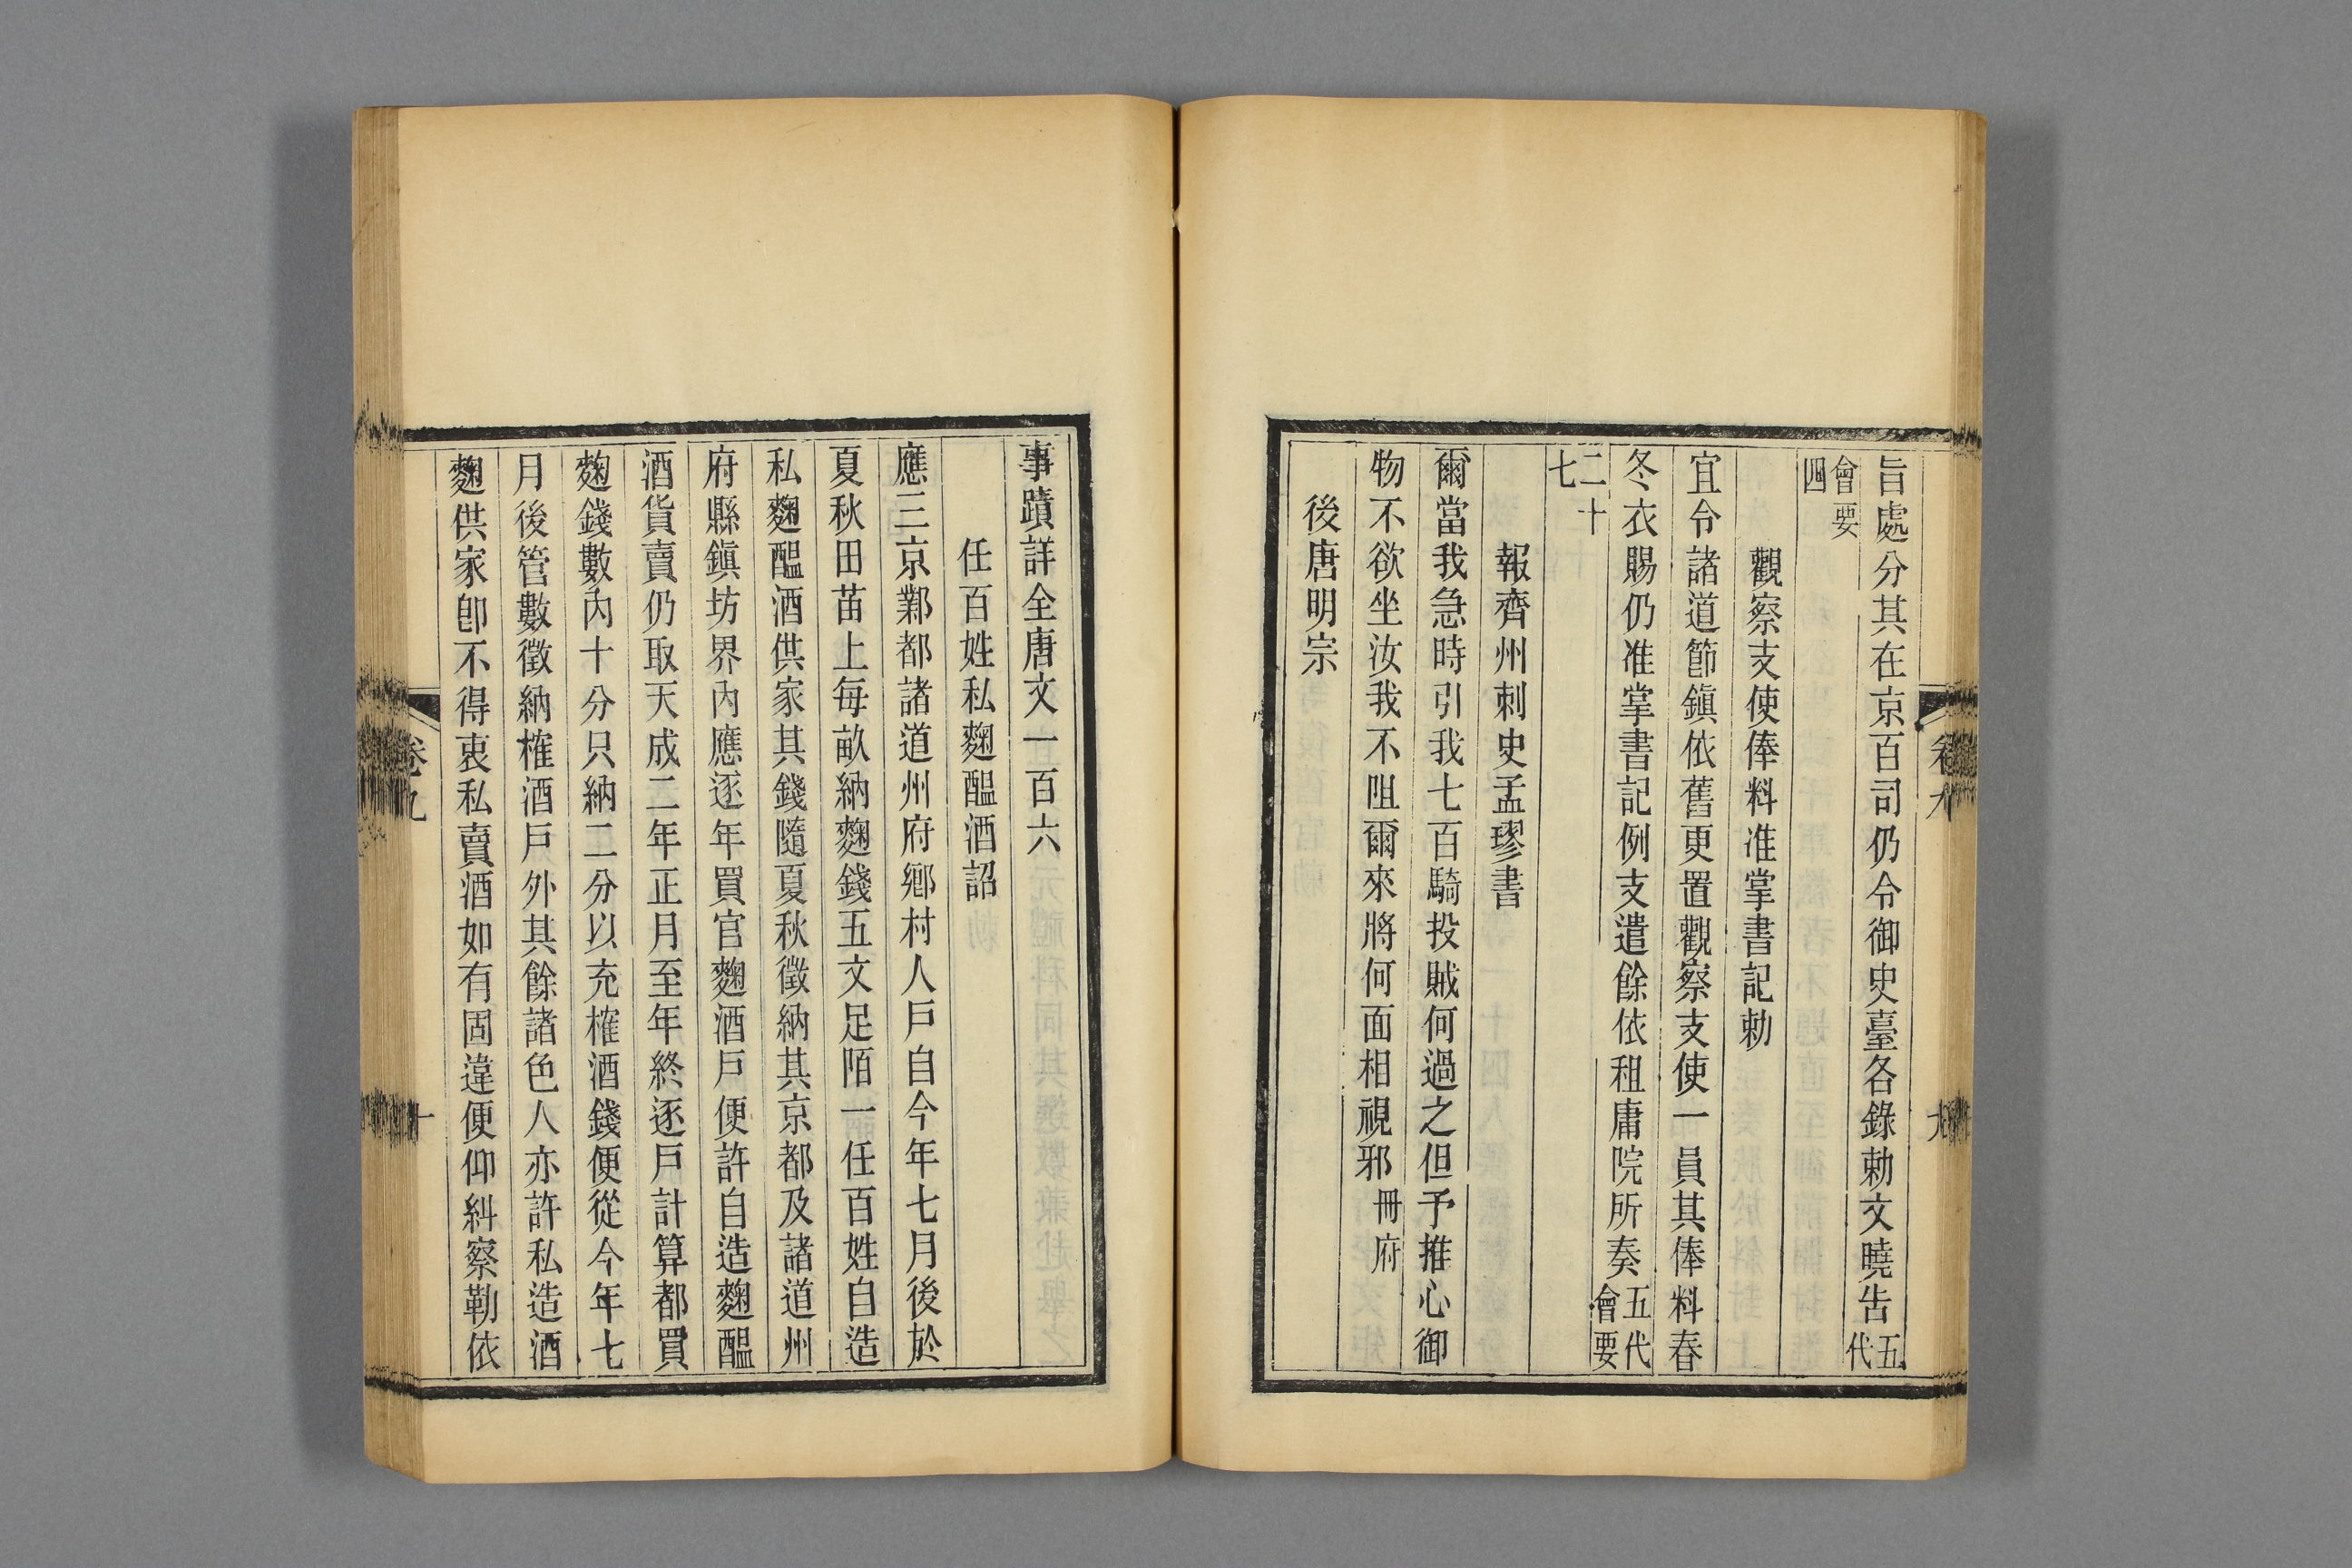 旨處分其在京百司仍令御史臺各錄勅文曉告五代
會要四
觀察支使俸料准掌書記勅
宜令諸道節鎮依舊更置觀察支使一員其俸料春
冬衣賜仍准掌書記例支遣餘依租庸院所奏五代會要
二十七
報齊州刺史孟璆書
爾當我急時引我七百騎投賊何過之但予推心御
物不欲坐汝我不阻爾來將何面相視邪冊府
後唐明宗
卷九
九
事蹟詳全唐文一百六
任百姓私麴醖酒詔
應三京鄴都諸道州府鄉村人戶自今年七月後於
夏秋田苗上每畝納麴錢五文足陌一任百姓自造
私麴醖酒供家其錢隨夏秋徵納其京都及諸道州
府縣鎮坊界內應逐年買官麴酒戶便許自造麴醖
酒貨賣仍取天成二年正月至年終逐戶計算都買
麴錢數內十分只納二分以充榷酒錢便從今年七
月後管數徵納榷酒戶外其餘諸色人亦許私造酒
麴供家卽不得衷私賣酒如有固違便仰糾察勒依
卷九
十